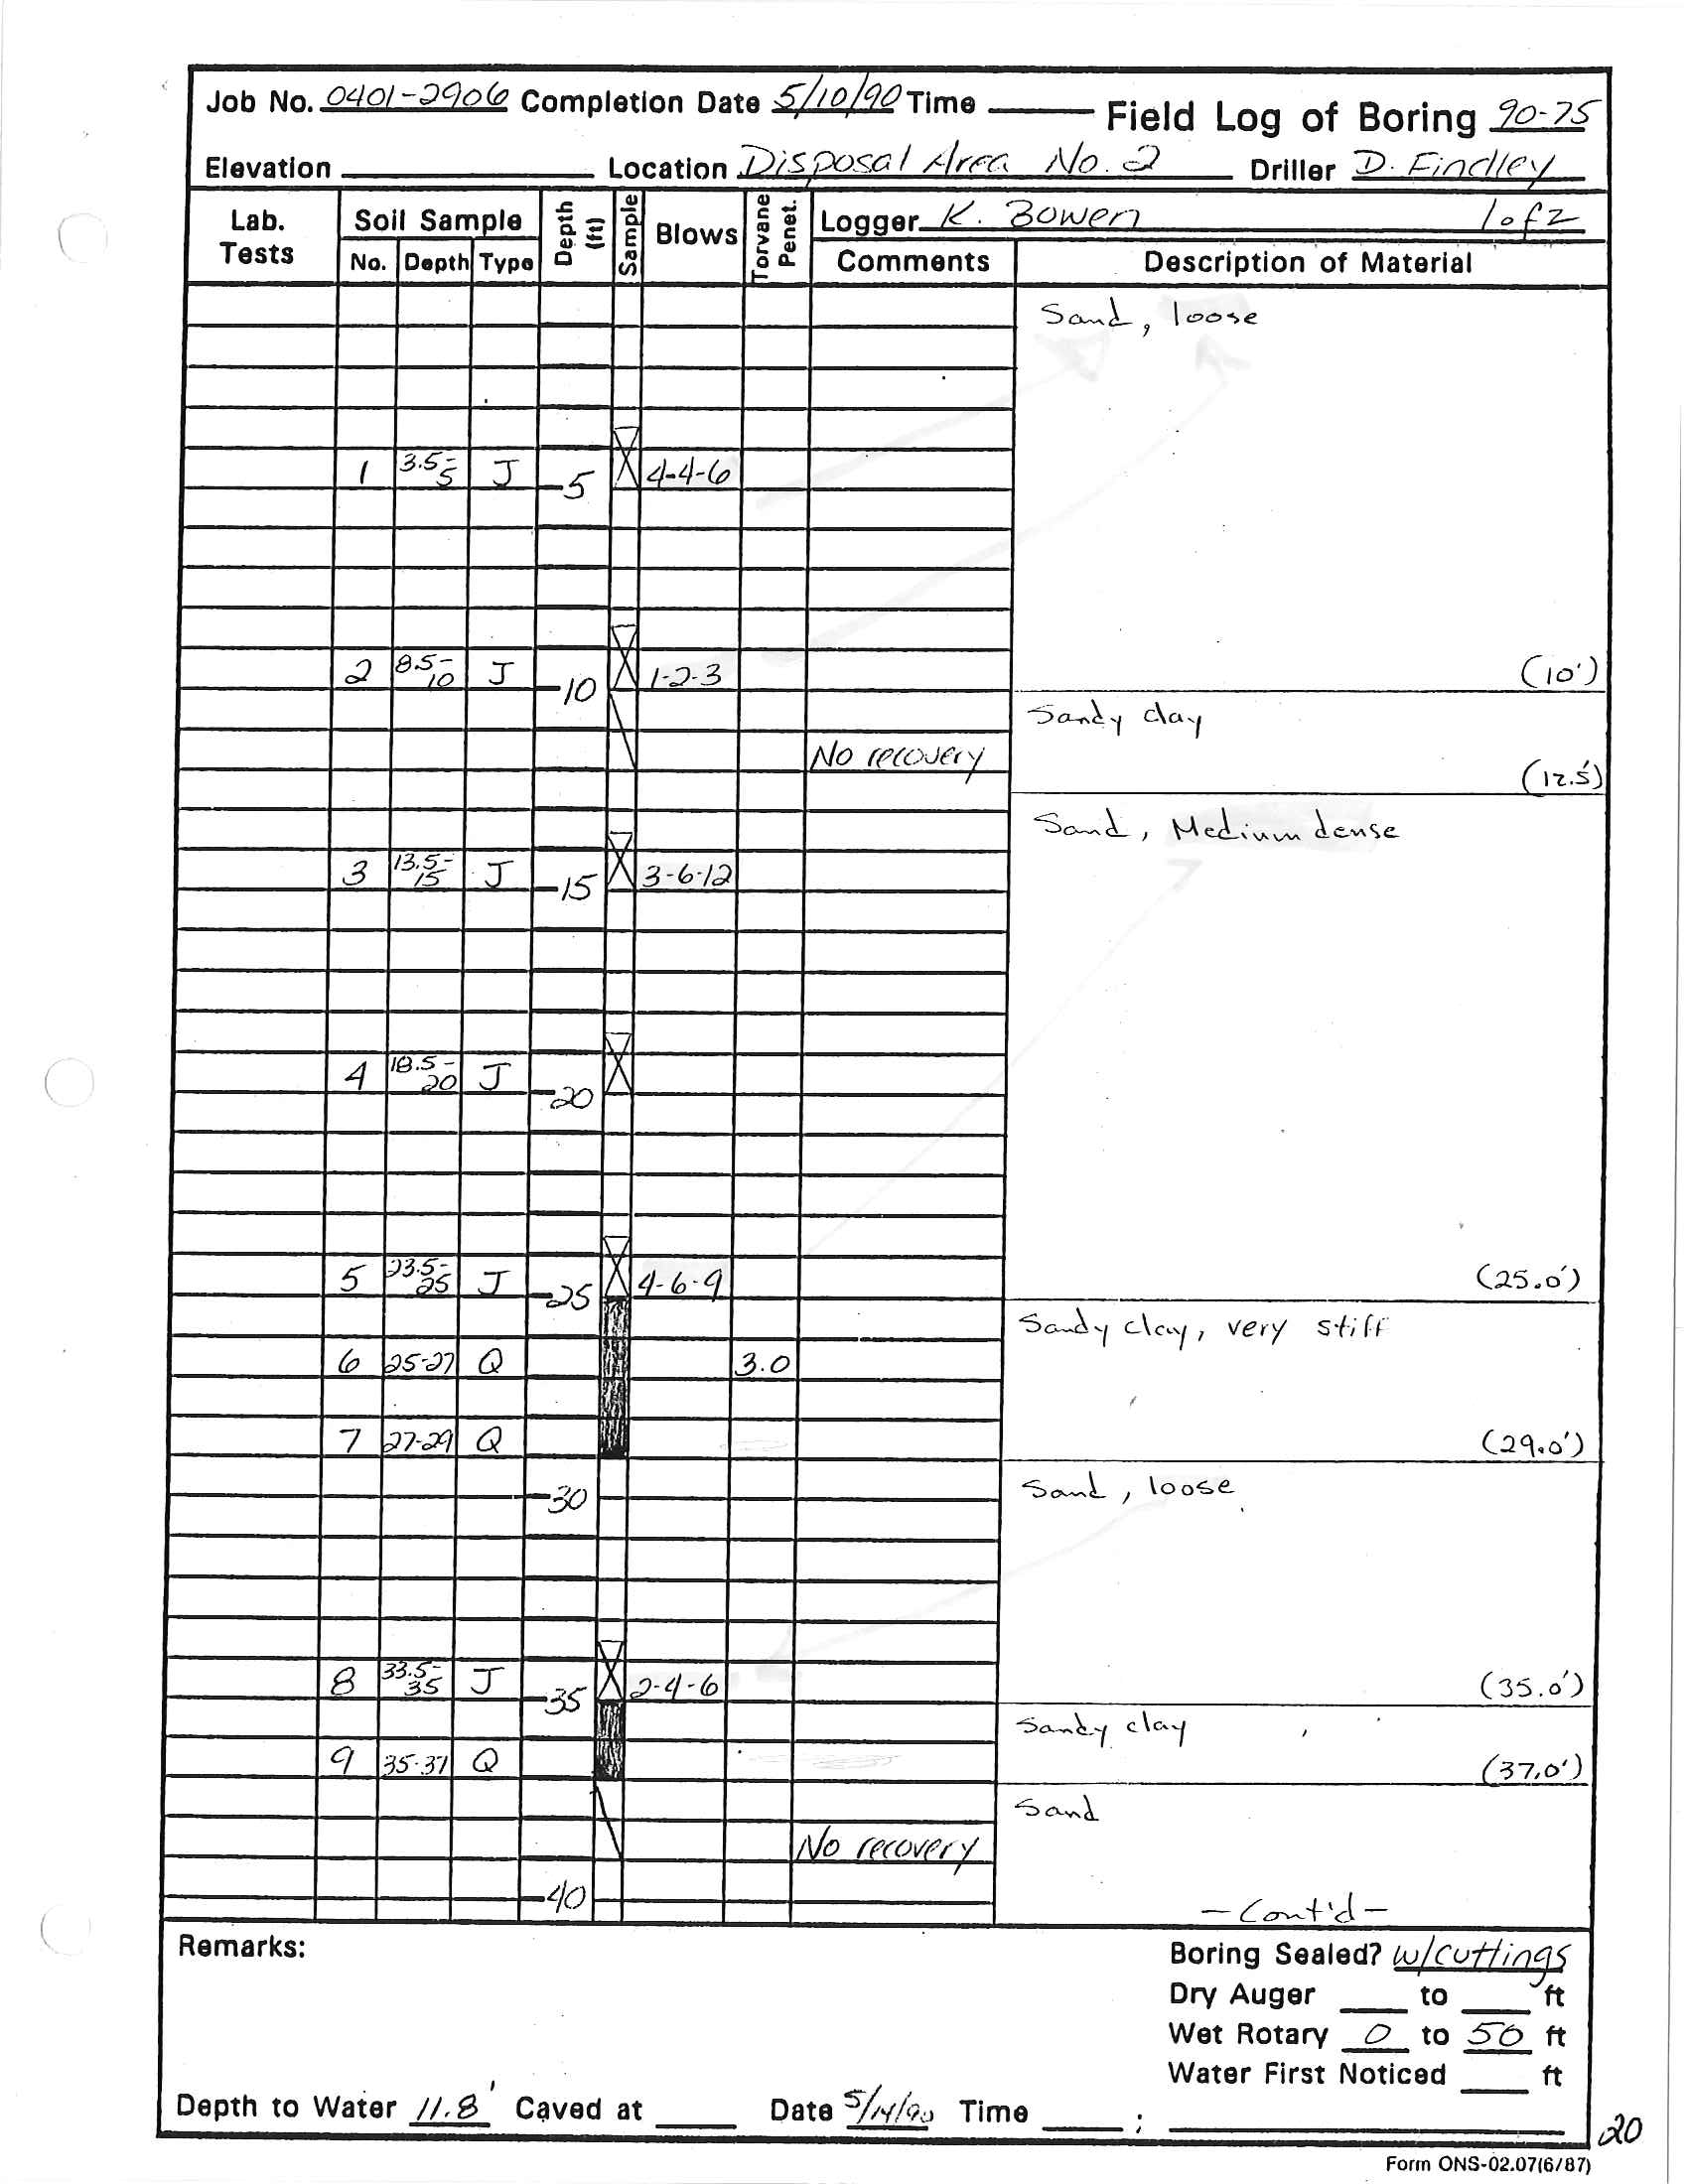 Job No. 0401-2906 Completion Date 5/10/90 Time Field Log of Boring 90-75
Elevation Location Disposal Area No. 2 Driller D. Findley
Lab. Tests Soil Sample No. Depth Type Depth (ft) Sample Blows Torvane Penet. Logger K. Bowen 1 of 2
Comments Description of Material
Sand, loose
1 3.5-5 J 5 4-4-6
2 8.5-10 J 10 1-2-3 (10')
Sandy clay
No recovery
(12.5')
Sand, Medium dense
3 13.5-15 J 15 3-6-12
4 18.5-20 J 20
5 23.5-25 J 25 4-6-9 (25.0')
Sandy clay, very stiff
6 25-27 Q 3.0
7 27-29 Q (29.0')
30 Sand, loose
8 33.5-35 J 35 2-4-6 (35.0')
Sandy clay
9 35-37 Q (37.0')
Sand
No recovery
40 - Cont'd -
Remarks: Boring Sealed? w/cuttings
Dry Auger to ft
Wet Rotary 0 to 50 ft
Water First Noticed ft
Depth to Water 11.8' Caved at Date 5/14/90 Time ;
20
Form ONS-02.07(6/87)